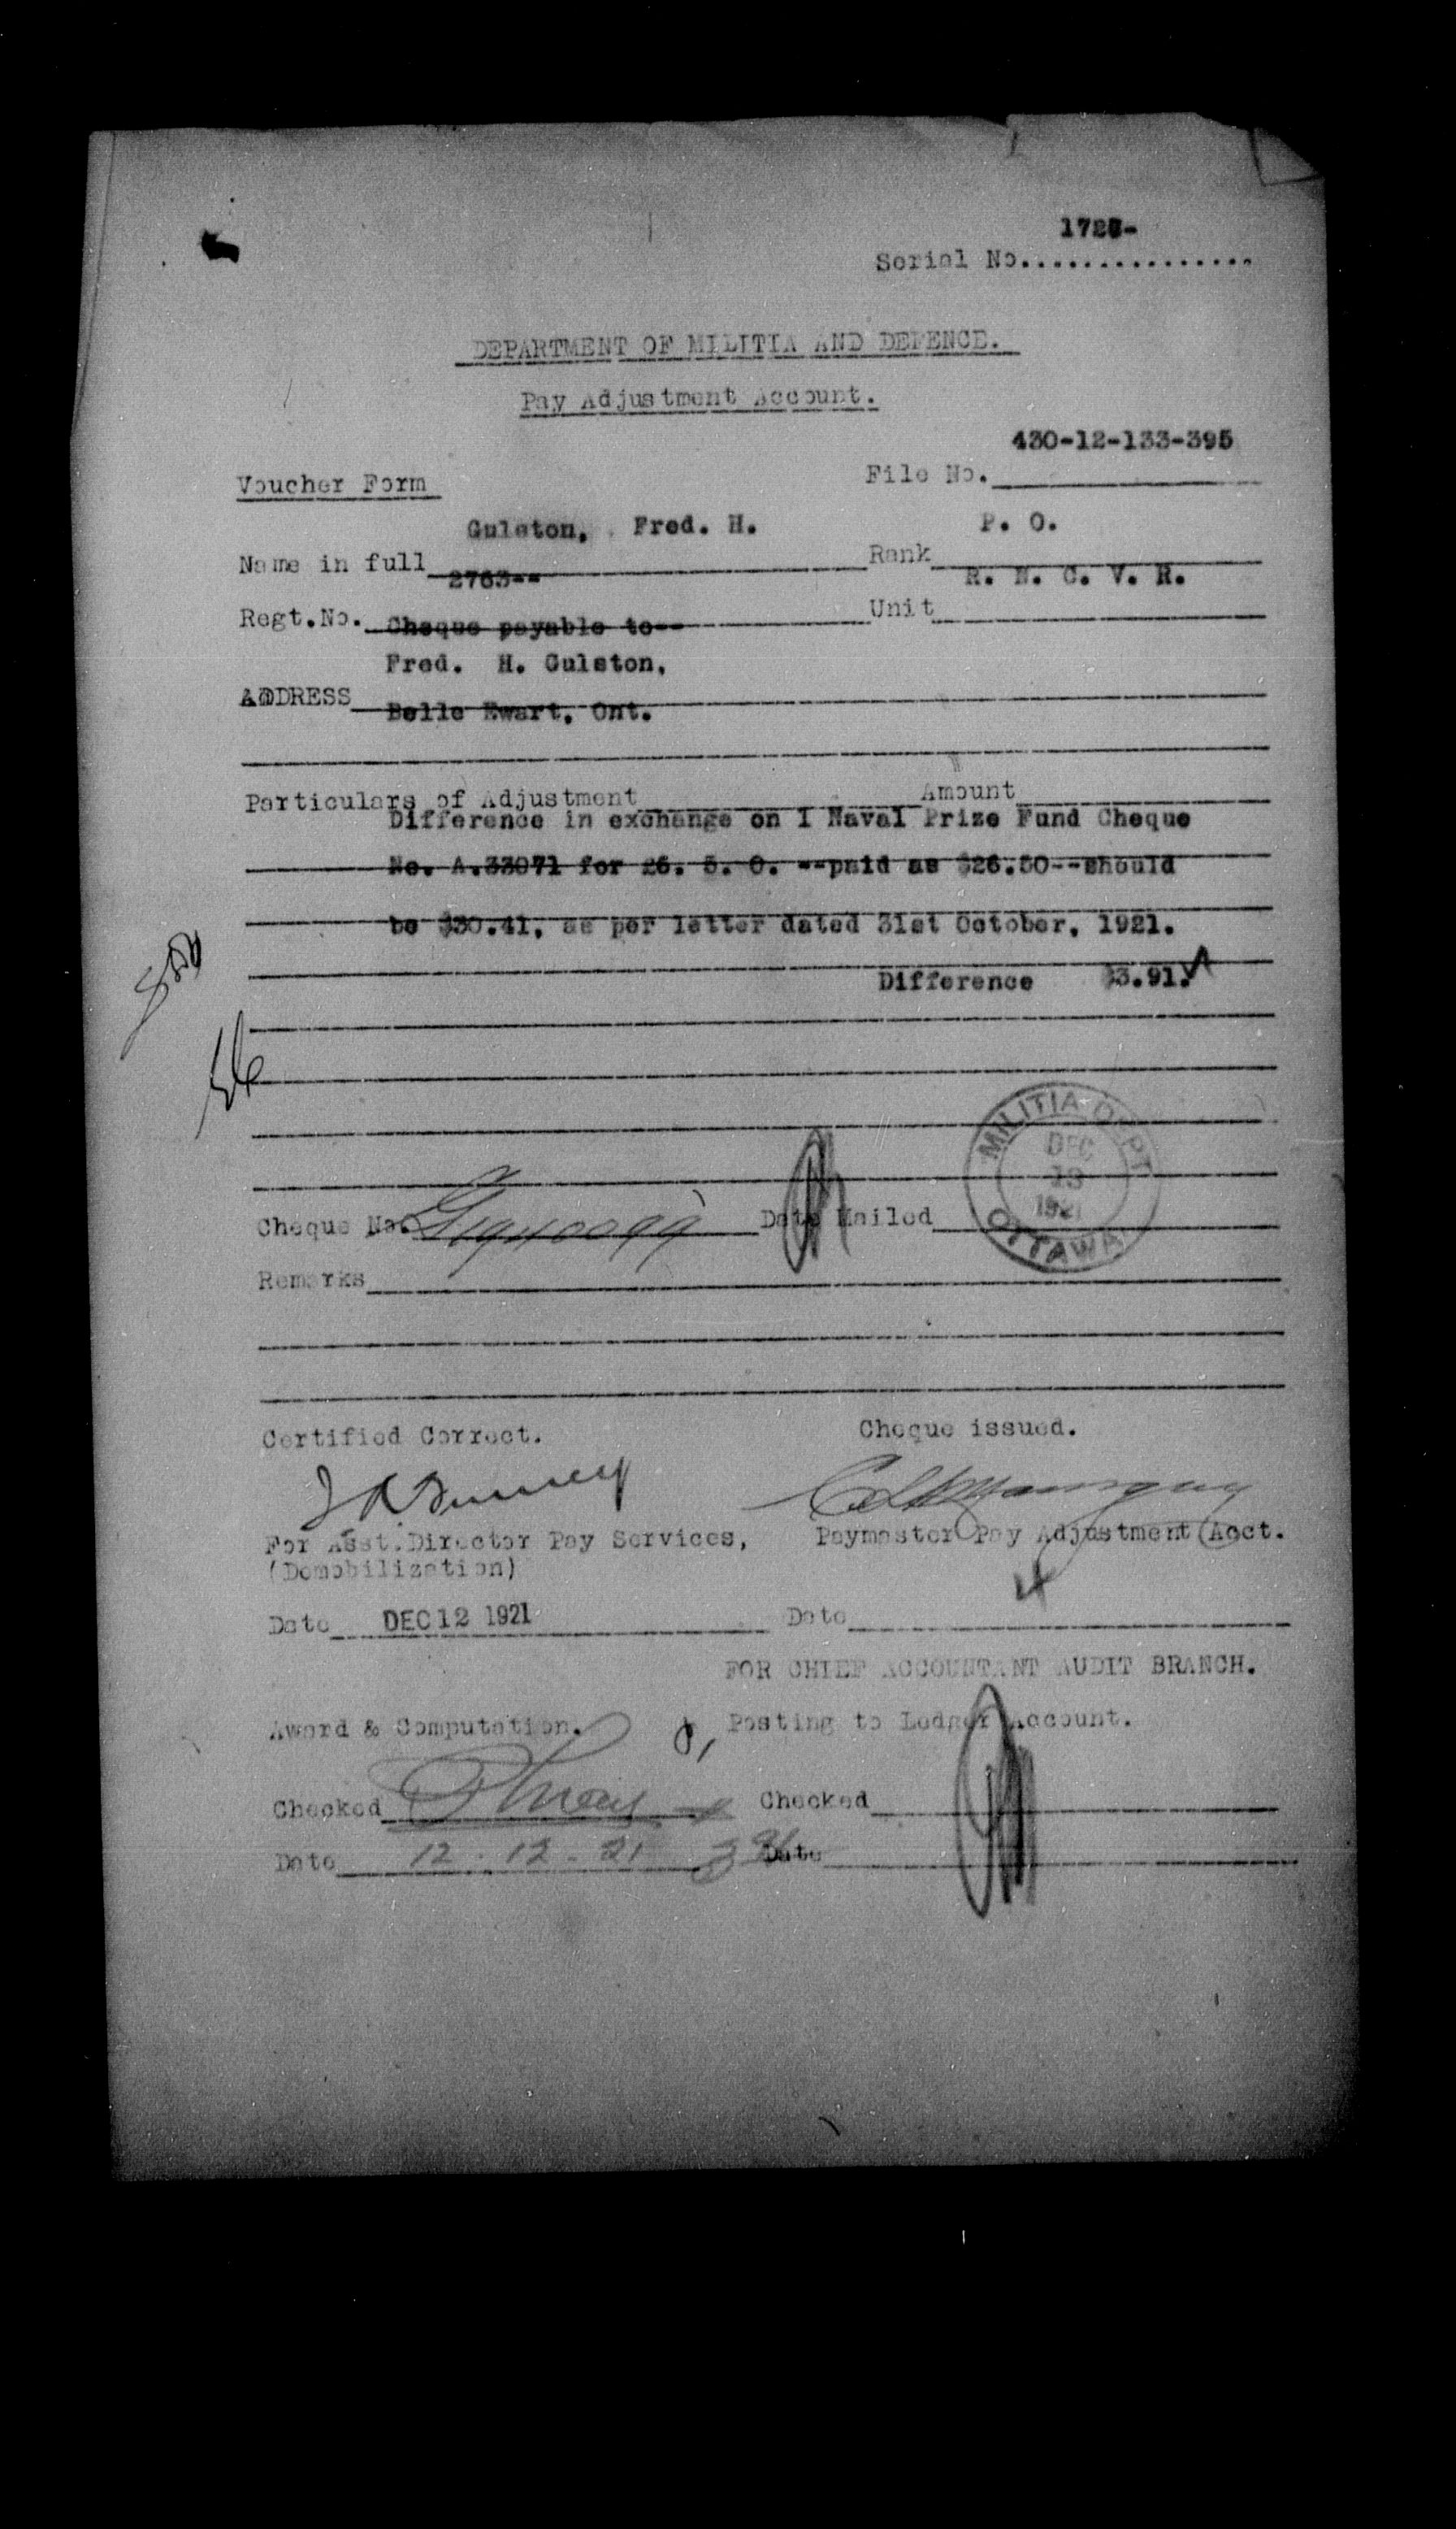 Serial No................
DEPARTMENT OF MILITIA AND DEFENCE.
Pay Adjustment Account.
430-12-133-395
Voucher Form File No.
Gulston, Fred. H. P. O.
Name in full Rank
2763-- R. N. C. V. R.
Regt.No. Unit
Cheque payable to--
Fred. H. Gulston,
ADDRESS
Belle Ewart, Ont.
Particulars of Adjustment Amount
Difference in exchange on I Naval Prize Fund Cheque
No. A.33071 for £6. 5. 0. --paid as $26.50--should
be $30.41, as per letter dated 31st October, 1921.
Difference $3.91.
MILITIA DEPT
DEC
13
1921
OTTAWA
Cheque No. Date Mailed
Remarks
Certified Correct. Cheque issued.
For Asst.Director Pay Services, Paymaster Pay Adjustment Acct.
(Demobilization)
Date DEC 12 1921 Date
FOR CHIEF ACCOUNTANT AUDIT BRANCH.
Award & Computation. Posting to Ledger Account.
Checked Checked
Date 12 . 12 - 21 Date